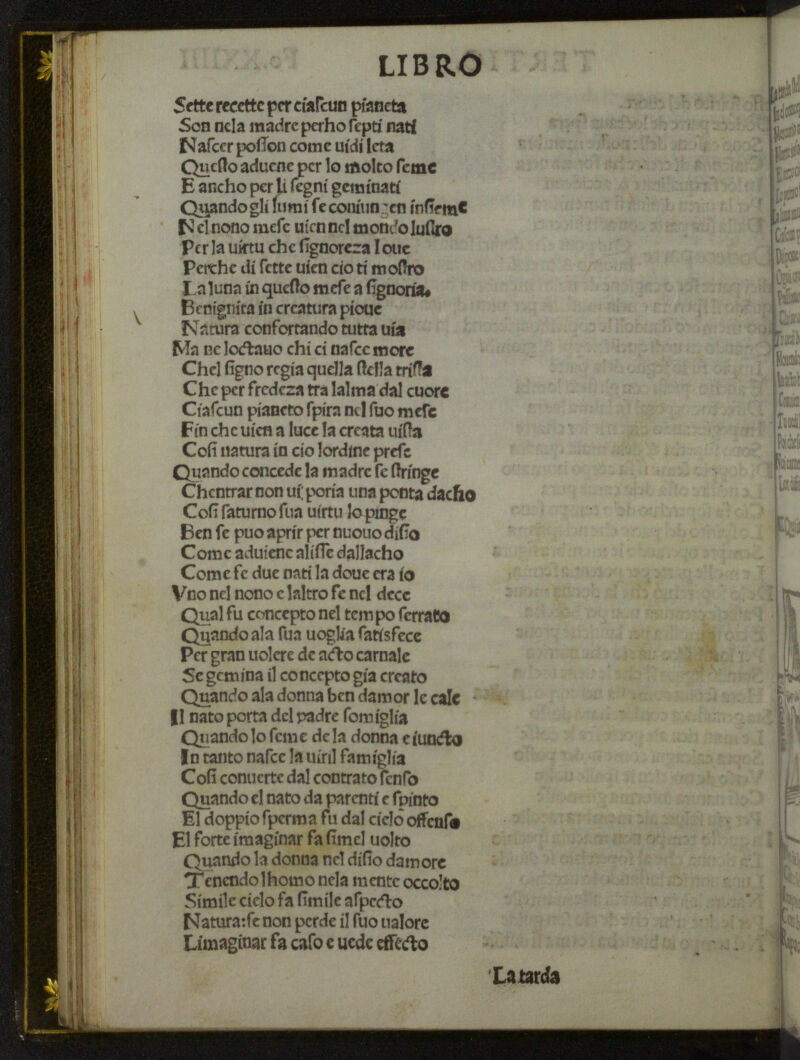 LIBRO
Sette recette per ciaſcun pianeta
Son nela madre perho ſepti nati
Naſcer poſſon come uidi leta
Queſto aduene per lo molto ſeme
E ancho per li ſegni geminati
Quando gli lumi ſe coniungen inſieme
Nel nono meſe uien nel mondo luſtro
Per la uirtu che ſignoreza Ioue
Perche di ſette uien cio ti moſtro
La luna in queſto meſe a ſignoria.
Benignita in creatura pioue
Natura confortando tutta uia
Ma ne loctauo chi ci naſce more
Chel ſigno regia quella ſtella triſta
Che per fredeza tra lalma dal cuore
Ciaſcun pianeto ſpira nel ſuo meſe
Fin che uien a luce la creata uiſta
Coſi natura in cio lordine preſe
Quando concede la madre ſe ſtringe
Chentrar non ui poria una ponta dacho
Coſi ſaturno ſua uirtu lo pinge
Ben ſe puo aprir per nuouo diſio
Come aduiene aliſſe dallacho
Come ſe due nati la doue era io
Vno nel nono e laltro ſe nel dece
Qual fu concepto nel tempo ſerrato
Quando ala ſua uoglia ſatisfece
Per gran uolere de acto carnale
Se gemina il concepto gia creato
Quando ala donna ben damor le cale
Il nato porta del padre ſomiglia
Quando lo ſeme de la donna e iuncto
In tanto naſce la uiril famiglia
Coſi conuerte dal contrato ſenſo
Quando el nato da parenti e ſpinto
El doppio ſperma fu dal cielo offenſo
El forte imaginar fa ſimel uolto
Quando la donna nel diſio damore
Tenendo lhomo nela mente occolto
Simile cielo fa ſimile aſpecto
Natura:ſe non perde il ſuo ualore
Limaginar fa caſo e uede effecto
La tarda